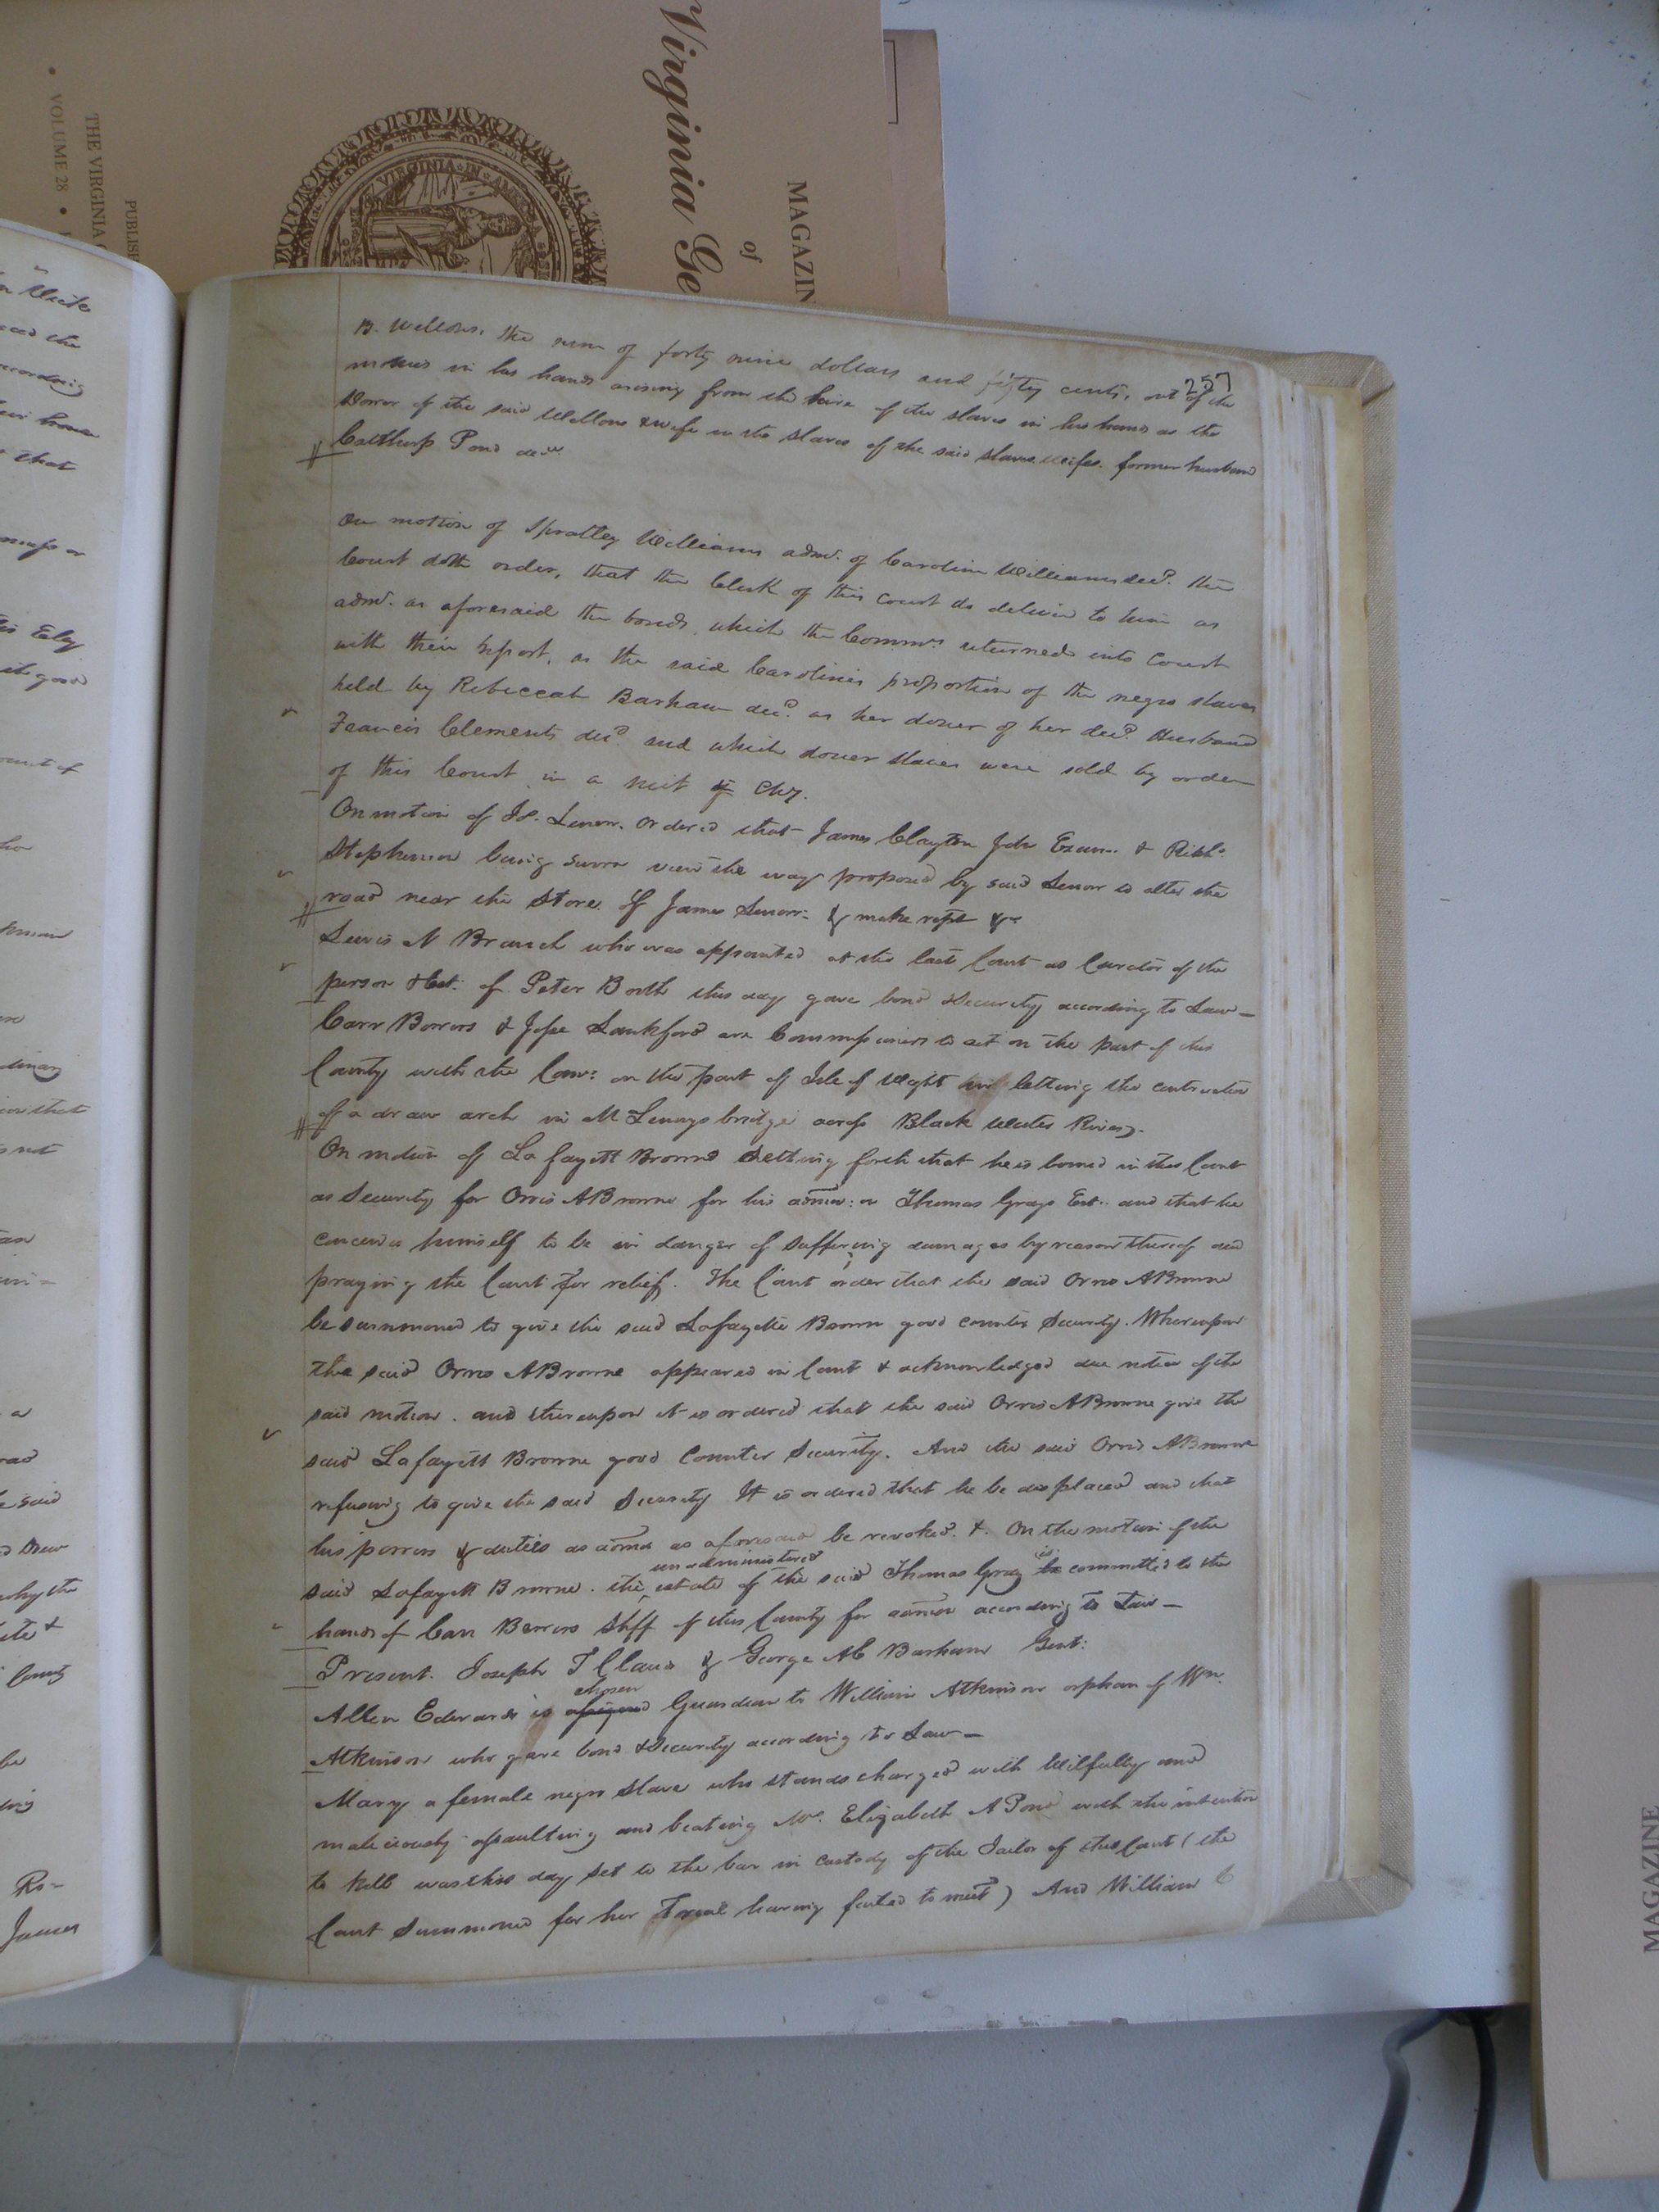 Virginia Ge
of
MAGAZIN
THE VIRGINIA
VOLUME 28
PUBLISH
257
B. Wellons, the sum of forty nine dollars and fifty cents, out of the
monies in his hands arising from the hire of the slaves in his hands as the
Dower of the said Wellons & wife in the slaves of the said slaves wifes former husband
Calthorp Pond decd
On motion of Spratley Williams admr. of Caroline Williams decd. the
Court doth order, that the Clerk of this Court do deliver to him as
admr. as aforesaid the bonds, which the Commrs returned into Court
with their report, as the said Caroline's proportion of the negro slaves
held by Rebeccah Barham decd. as her dower of her decd. Husband
Francis Clements decd. and which dower slaves were sold by order
of this Court in a suit in Chy.
On motion of Js. Lenow. Ordered that James Clayton Jdn Exum & Richd.
Stephenson being sworn view the way proposed by said Lenow to alter the
road near the Store of James Lenow & make rept &c
Lewis N Branch who was appointed at the last Court as Curator of the
person & Est. of Peter Booth this day gave bond & Security according to Law—
Carr Bowers & Jesse Lankford are Commissioners to act on the part of this
County with the Com: on the part of Isle of Wight letting the contraction
of a draw arch in M Lenays bridge across Black Water River.
On motion of La fayett Browne Setting forth that he is bound in this Court
as Security for Orris A Browne for his admin: on Thomas Grays Est: and that he
conceives himself to be in danger of suffering damages by reason thereof and
praying the Court for relief. The Court order that the said Orris A Browne
be summoned to give the said Lafayette Browne good counter Security. Whereupon
the said Orris A Browne appeared in Court & acknowledged due notice of the
said motion. and thereupon it is ordered that the said Orris A Browne give the
said Lafayett Browne good Counter Security. And the said Orris A Browne
refusing to give the said Security It is ordered that he be displaced and that
his powers & duties as admr as aforesaid be revoked. &. On the motion of the
said Lafayett Browne. the unadministered estate of the said Thomas Gray is be committed to the
hands of Carr Bowers Shff of this County for admin according to Law—
Present. Joseph T Claud & George AC Barham Gent:
Allen Edwards is assigned chosen Guardian to William Atkinson orphan of Wm.
Atkinson who gave bond & Security according to Law—
Mary a female negro Slave who stands charged with Wilfully and
maliciously assaulting and beating Mrs. Elizabeth A Pond with the intention
to kill was this day set to the bar in custody of the Jailor of this Court (the
Court Summoned for her Trial having failed to meet) And William C
MAGAZINE